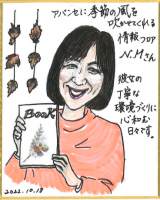 アバンセに季節の風を
吹かせてくれる
情報フロア
N.Mさん
彼女の
丁寧な
環境づくりに
心和む
日々です。
BooK
2022.10.18